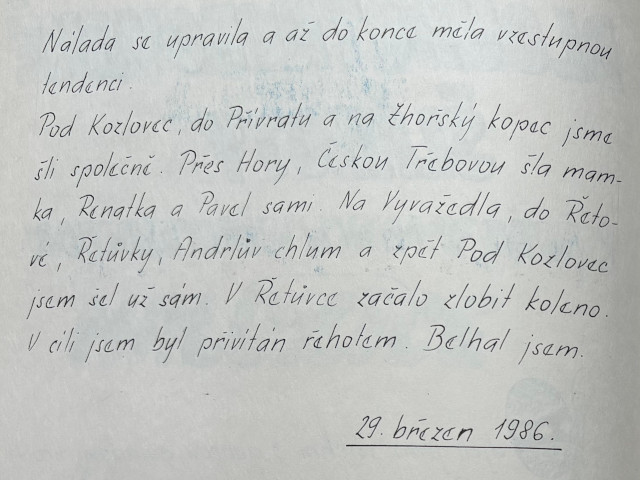 Nálada se upravila a až do konce měla vzestupnou
tendenci.
Pod Kozlovec, do Přívratu a na Žhořský kopec jsme
šli společně. Přes Hory, Českou Třebovou šla mam-
ka, Renatka a Pavel sami. Na Vyvažedla, do Řeto-
vé, Řetůvky, Andrlův chlum a zpět Pod Kozlovec
jsem šel už sám. V Řetůvce začalo zlobit koleno.
V cíli jsem byl přivítán řehotem. Belhal jsem.
29. březen 1986.